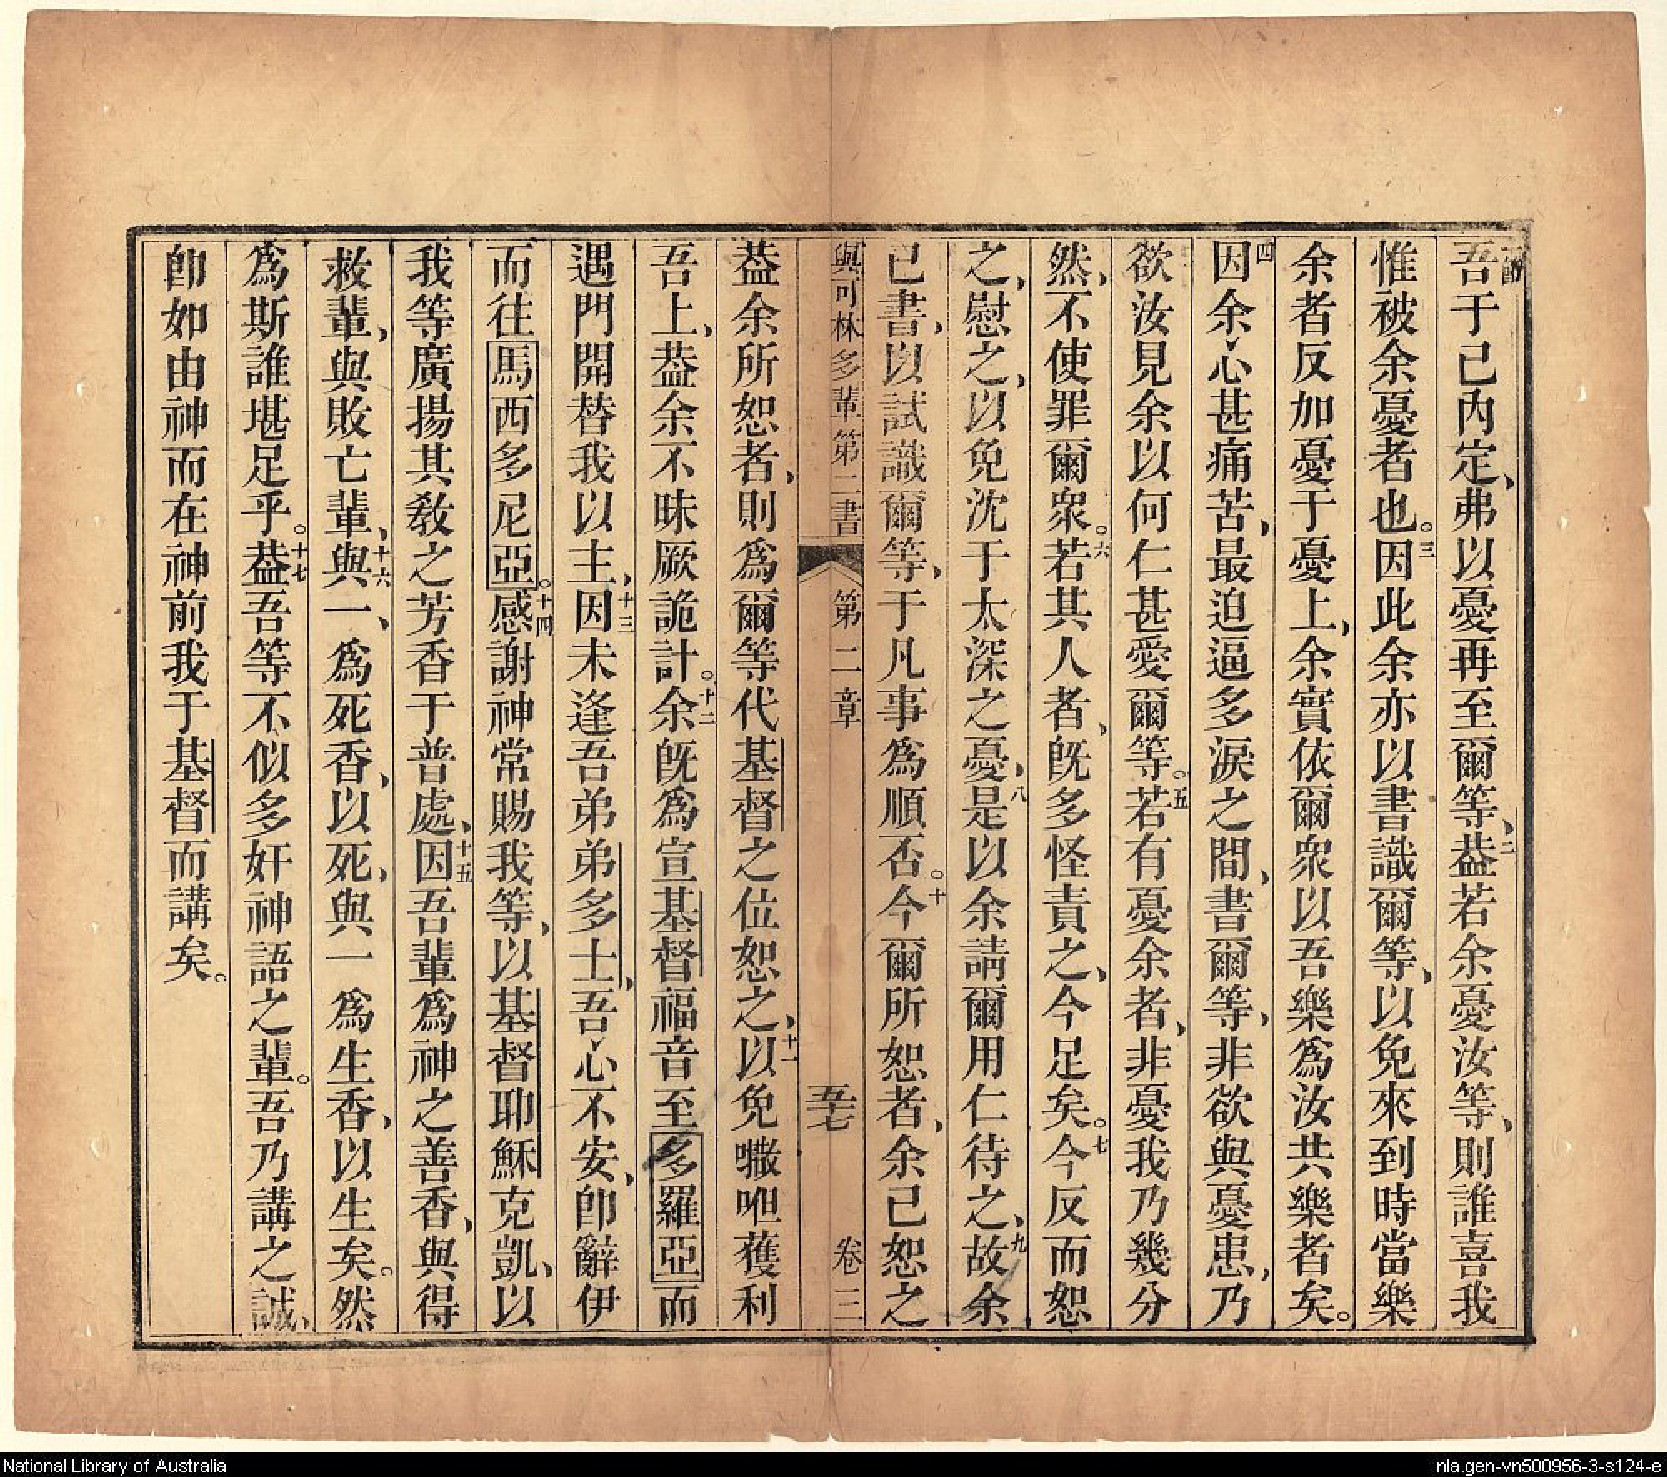 吾于己內定、弗以憂再至爾等、二葢若余憂汝等、則誰喜我
惟被余憂者也。三因此余亦以書識爾等、以免來到時當樂
余者反加憂于憂上、余實依爾衆以吾樂爲汝共樂者矣。
四因余心甚痛苦、最迫逼多淚之間、書爾等、非欲與憂患、乃
欲汝見余以何仁甚愛爾等。五若有憂余者、非憂我乃幾分
然、不使罪爾衆。六若其人者、旣多怪責之、今足矣。七今反而恕
之、慰之、以免沈于太深之憂、八是以余請爾用仁待之、九故余
已書、以試識爾等、于凡事爲順否。十今爾所恕者、余已恕之
與可林多輩第二書 第二章 五七 卷三
葢余所恕者、則爲爾等代基督之位恕之、十一以免嘥呾獲利
吾上、葢余不昧厥詭計。十二余旣爲宣基督福音至多羅亞而
遇門開替我以主、十三因未逢吾弟弟多士、吾心不安、卽辭伊
而往馬西多尼亞。十四感謝神常賜我等、以基督耶穌克凱、以
我等廣揚其教之芳香于普處、十五因吾輩爲神之善香、與得
救輩、與敗亡輩、十六與一、爲死香、以死、與一爲生香、以生矣。然
爲斯誰堪足乎。十七葢吾等不似多奸神語之輩。吾乃講之誠、
卽如由神而在神前我于基督而講矣。
National Library of Australia
nla.gen-vn500956-3-s124-e